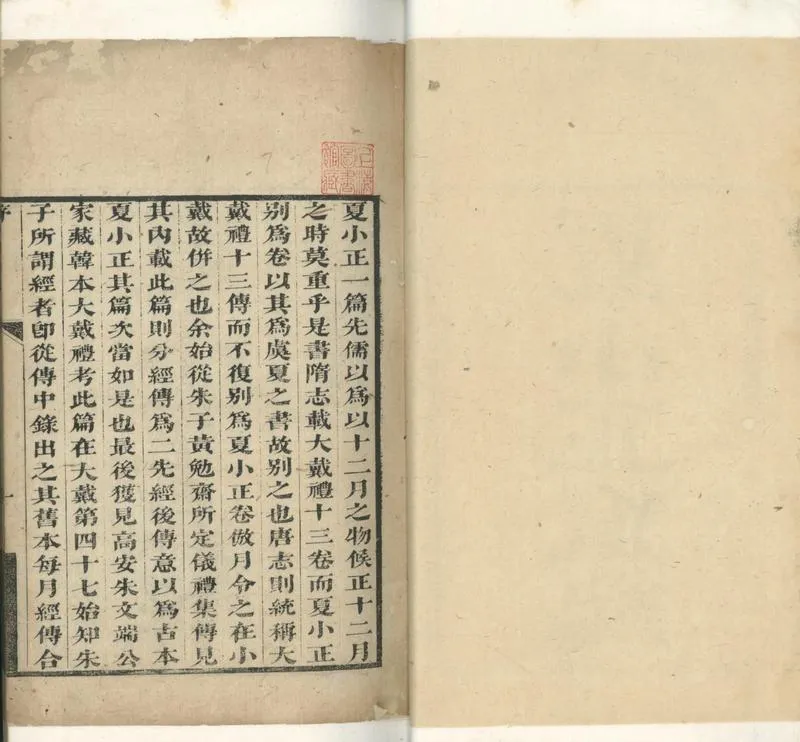 夏小正一篇先儒以為以十二月之物候正十二月
之時莫重乎是書隋志載大戴禮十三卷而夏小正
别為卷以其為虞夏之書故别之也唐志則統稱大
戴禮十三傳而不復别為夏小正卷倣月令之在小
戴故併之也余始從朱子黄勉齋所定儀禮集傳見
其内載此篇則分經傳為二先經後傳意以為古本
夏小正其篇次當如是也最後獲見高安朱文端公
家藏韓本大戴禮考此篇在大戴第四十七始知朱
子所謂經者卽從傳中錄出之其舊本每月經傳合
序
一